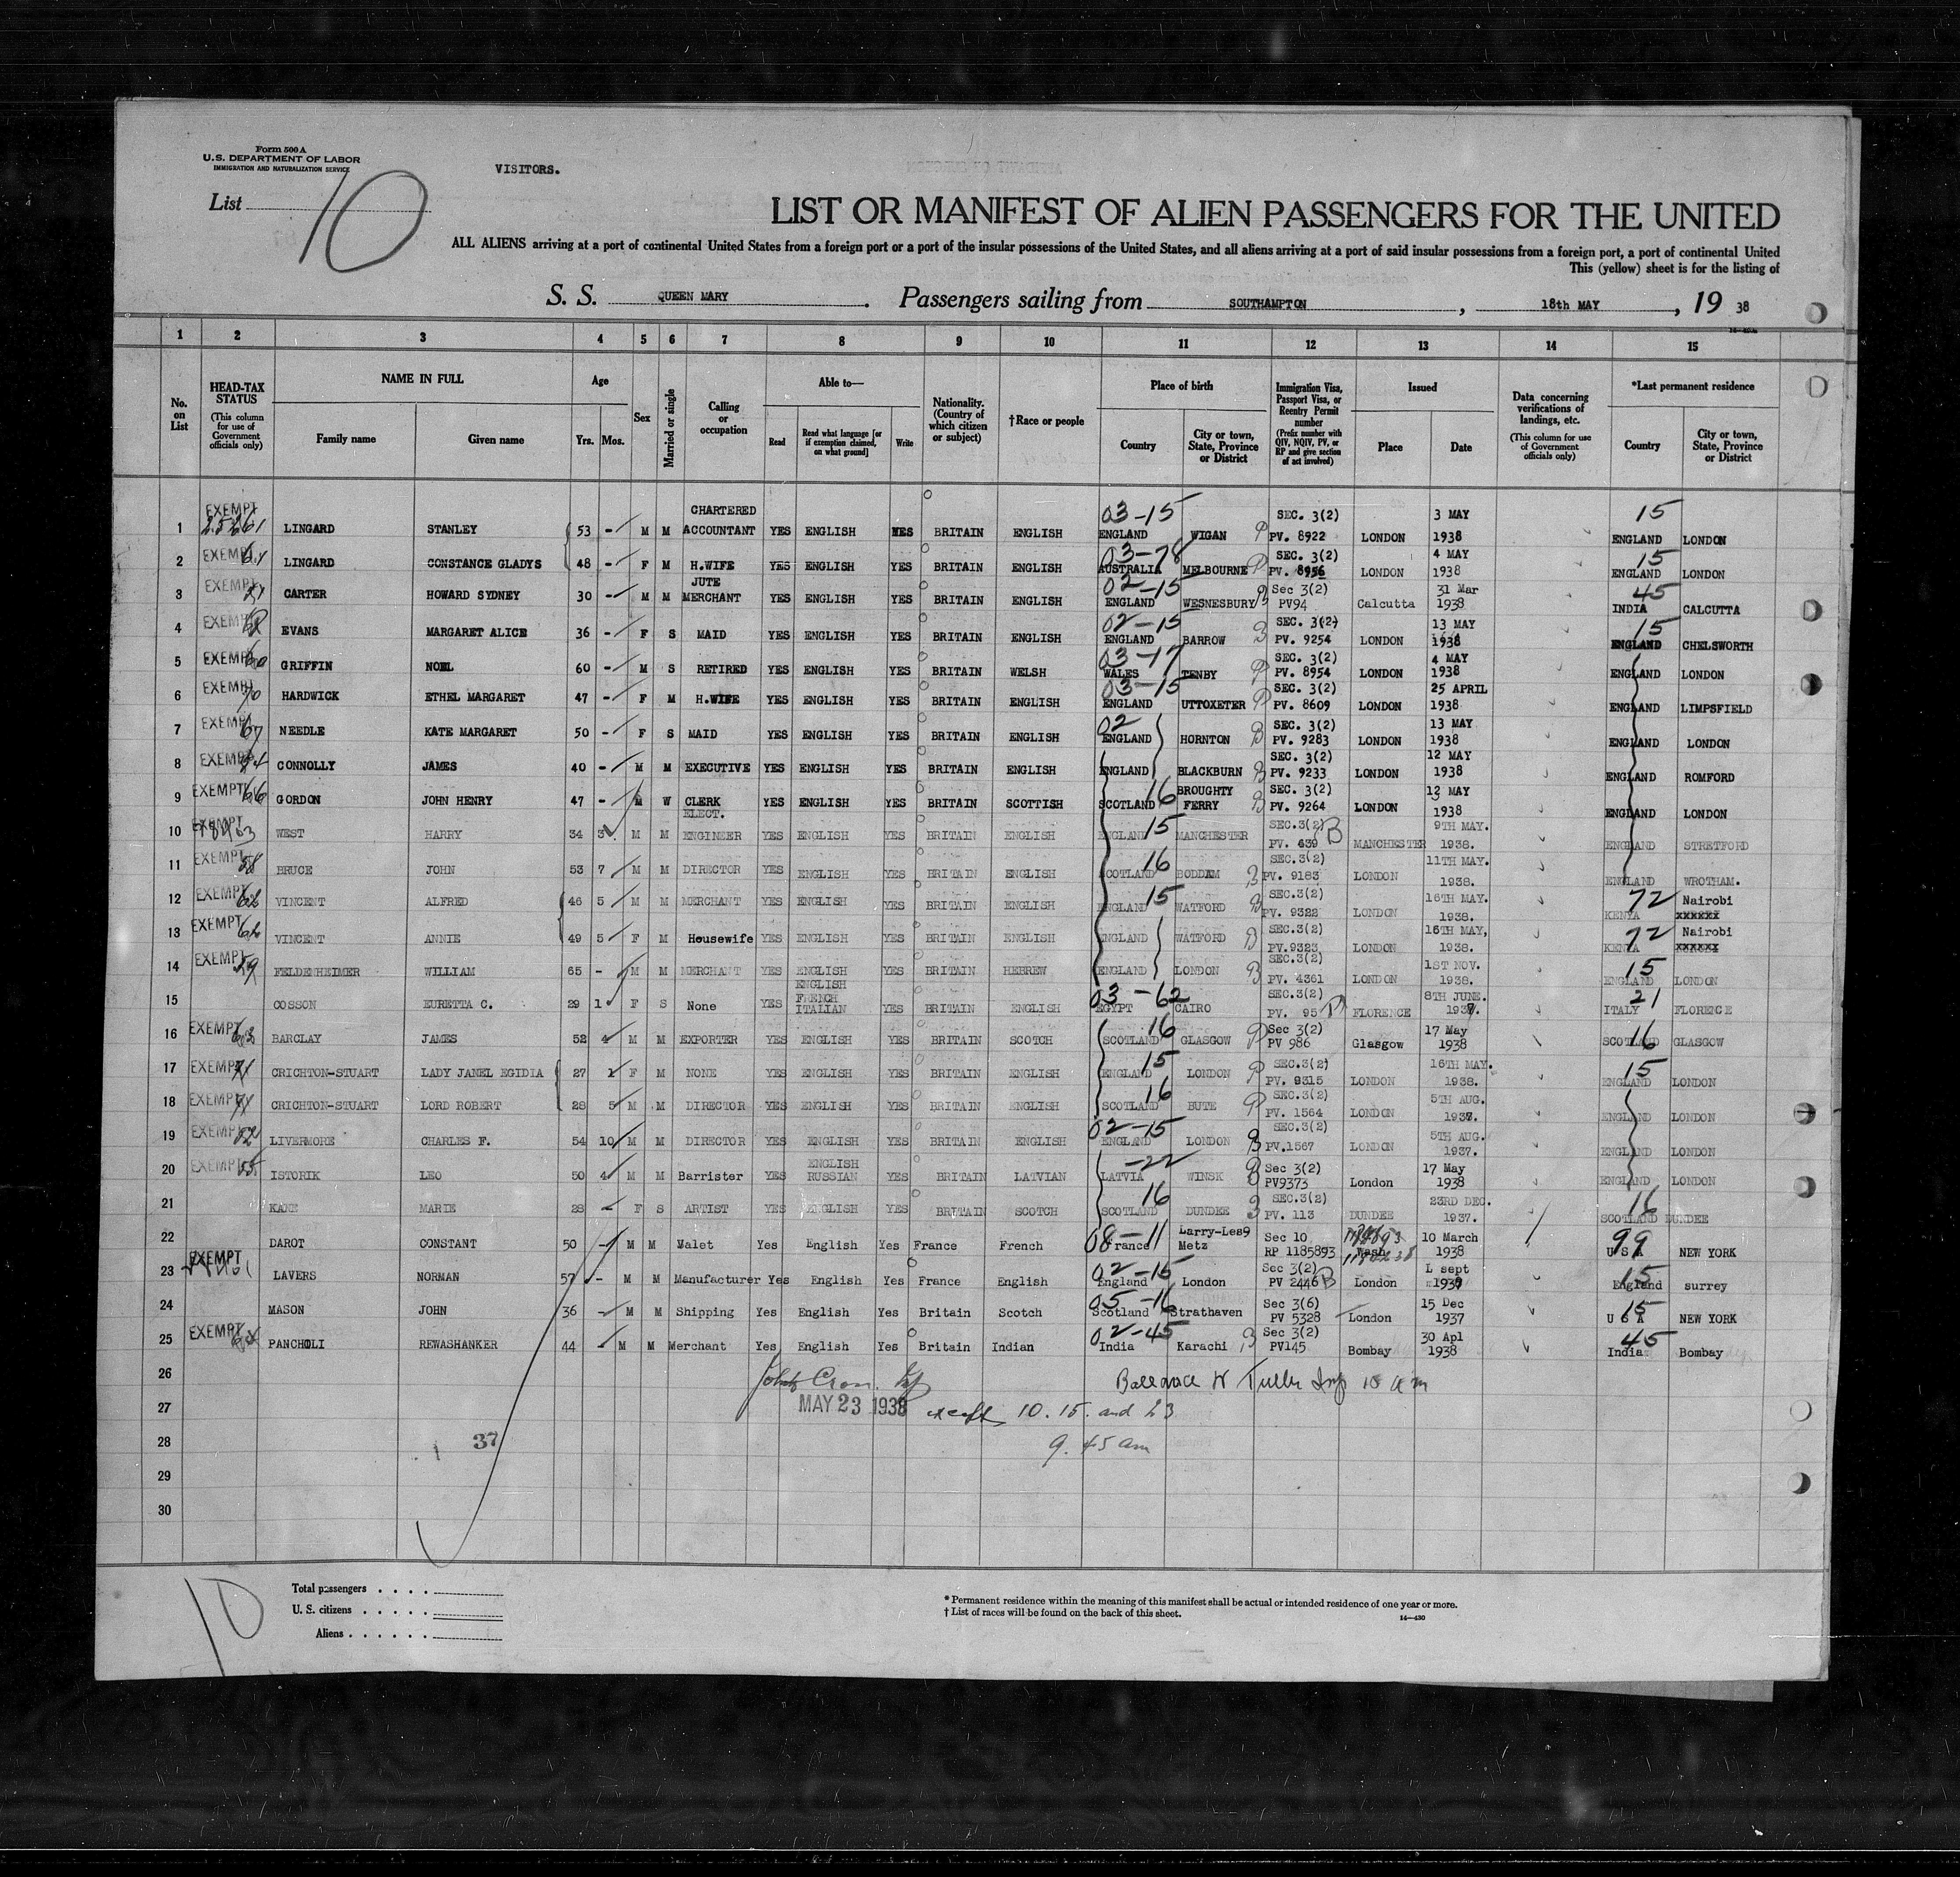 Form 500 A
U.S. DEPARTMENT OF LABOR
IMMIGRATION AND NATURALIZATION SERVICE
VISITORS.
List 10
LIST OR MANIFEST OF ALIEN PASSENGERS FOR THE UNITED
ALL ALIENS arriving at a port of continental United States from a foreign port or a port of the insular possessions of the United States, and all aliens arriving at a port of said insular possessions from a foreign port, a port of continental United
This (yellow) sheet is for the listing of
S. S. QUEEN MARY. Passengers sailing from SOUTHAMPTON, 18th MAY, 19 38
1 2 3 4 5 6 7 8 9 10 11 12 13 14 15
No. on List
HEAD-TAX STATUS (This column for use of Government officials only)
NAME IN FULL Family name Given name
Age Yrs. Mos.
Sex
Married or single
Calling or occupation
Able to— Read Read what language [or if exemption claimed, on what ground] Write
Nationality. (Country of which citizen or subject)
†Race or people
Place of birth Country City or town, State, Province or District
Immigration Visa, Passport Visa, or Reentry Permit number (Prefix number with QIV, NQIV, PV, or RP and give section of act involved)
Issued Place Date
Data concerning verifications of landings, etc. (This column for use of Government officials only)
*Last permanent residence Country City or town, State, Province or District
1 EXEMPT LINGARD STANLEY 53 - M M CHARTERED ACCOUNTANT YES ENGLISH YES BRITAIN ENGLISH 03-15 ENGLAND WIGAN P SEC. 3(2) PV. 8922 LONDON 3 MAY 1938 15 ENGLAND LONDON
2 EXEMPT LINGARD CONSTANCE GLADYS 48 - F M H.WIFE YES ENGLISH YES BRITAIN ENGLISH 03-78 AUSTRALIA MELBOURNE P SEC. 3(2) PV. 8956 LONDON 4 MAY 1938 15 ENGLAND LONDON
3 EXEMPT CARTER HOWARD SYDNEY 30 - M M JUTE MERCHANT YES ENGLISH YES BRITAIN ENGLISH 02-15 ENGLAND WESNESBURY B Sec 3(2) PV94 Calcutta 31 Mar 1938 45 INDIA CALCUTTA
4 EXEMPT EVANS MARGARET ALICE 36 - F S MAID YES ENGLISH YES BRITAIN ENGLISH 02-15 ENGLAND BARROW B SEC. 3(2) PV. 9254 LONDON 13 MAY 1938 15 ENGLAND CHELSWORTH
5 EXEMPT GRIFFIN NOEL 60 - M S RETIRED YES ENGLISH YES BRITAIN WELSH 03-17 WALES TENBY P SEC. 3(2) PV. 8954 LONDON 4 MAY 1938 ENGLAND LONDON
6 EXEMPT 70 HARDWICK ETHEL MARGARET 47 - F M H.WIFE YES ENGLISH YES BRITAIN ENGLISH 03-15 ENGLAND UTTOXETER P SEC. 3(2) PV. 8609 LONDON 25 APRIL 1938 ENGLAND LIMPSFIELD
7 EXEMPT 67 NEEDLE KATE MARGARET 50 - F S MAID YES ENGLISH YES BRITAIN ENGLISH 02 ENGLAND HORNTON B SEC. 3(2) PV. 9283 LONDON 13 MAY 1938 ENGLAND LONDON
8 EXEMPT CONNOLLY JAMES 40 - M M EXECUTIVE YES ENGLISH YES BRITAIN ENGLISH ENGLAND BLACKBURN B SEC. 3(2) PV. 9233 LONDON 12 MAY 1938 ENGLAND ROMFORD
9 EXEMPT 66 GORDON JOHN HENRY 47 - M W CLERK YES ENGLISH YES BRITAIN SCOTTISH SCOTLAND 16 BROUGHTY FERRY B SEC. 3(2) PV. 9264 LONDON MAY 1938 ENGLAND LONDON
10 EXEMPT WEST HARRY 34 3 M M ELECT. ENGINEER YES ENGLISH YES BRITAIN ENGLISH ENGLAND 15 MANCHESTER SEC.3(2) PV. 439 B MANCHESTER 9TH MAY. 1938. ENGLAND STRETFORD
11 EXEMPT 58 BRUCE JOHN 53 7 M M DIRECTOR YES ENGLISH YES BRITAIN ENGLISH SCOTLAND 16 BODDAM B SEC.3(2) PV. 9183 LONDON 11TH MAY. 1938. ENGLAND WROTHAM.
12 EXEMPT 62 VINCENT ALFRED 46 5 M M MERCHANT YES ENGLISH YES BRITAIN ENGLISH ENGLAND 15 WATFORD B SEC.3(2) PV. 9322 LONDON 16TH MAY. 1938. 72 KENYA Nairobi xxxxxx
13 EXEMPT 62 VINCENT ANNIE 49 5 F M Housewife YES ENGLISH YES BRITAIN ENGLISH ENGLAND WATFORD B SEC.3(2) PV.9323 LONDON 16TH MAY, 1938. 72 KENYA Nairobi xxxxxx
14 EXEMPT 59 FELDENHEIMER WILLIAM 65 - M M MERCHANT YES ENGLISH YES BRITAIN HEBREW ENGLAND LONDON B SEC.3(2) PV. 4361 LONDON 1ST NOV. 1938. 15 ENGLAND LONDON
15 COSSON EURETTA C. 29 1 F S None YES ENGLISH FRENCH ITALIAN YES BRITAIN ENGLISH 03-62 EGYPT CAIRO SEC.3(2) PV. 95 P FLORENCE 8TH JUNE. 1937. 21 ITALY FLORENCE
16 EXEMPT 63 BARCLAY JAMES 52 4 M M EXPORTER YES ENGLISH YES BRITAIN SCOTCH SCOTLAND 16 GLASGOW P Sec 3(2) PV 986 Glasgow 17 May 1938 16 SCOTLAND GLASGOW
17 EXEMPT 71 CRICHTON-STUART LADY JANEL EGIDIA 27 1 F M NONE YES ENGLISH YES BRITAIN ENGLISH ENGLAND 15 LONDON P SEC.3(2) PV. 9315 LONDON 16TH MAY. 1938. 15 ENGLAND LONDON
18 EXEMPT 71 CRICHTON-STUART LORD ROBERT 28 5 M M DIRECTOR YES ENGLISH YES BRITAIN ENGLISH SCOTLAND 16 BUTE P SEC.3(2) PV. 1564 LONDON 5TH AUG. 1937. ENGLAND LONDON
19 EXEMPT 52 LIVERMORE CHARLES F. 54 10 M M DIRECTOR YES ENGLISH YES BRITAIN ENGLISH 02-15 ENGLAND LONDON B SEC.3(2) PV.1567 LONDON 5TH AUG. 1937. ENGLAND LONDON
20 EXEMPT 55 ISTORIK LEO 50 4 M M Barrister YES ENGLISH RUSSIAN YES BRITAIN LATVIAN -22 LATVIA WINSK B Sec 3(2) PV9373 London 17 May 1938 ENGLAND LONDON
21 KANE MARIE 28 - F S ARTIST YES ENGLISH YES BRITAIN SCOTCH SCOTLAND 16 DUNDEE B SEC.3(2) PV. 113 DUNDEE 23RD DEC. 1937. 16 SCOTLAND DUNDEE
22 DAROT CONSTANT 50 - M M Valet Yes English Yes France French 08-11 France Larry-Les9 Metz Sec 10 RP 1185893 Wash 10 March 1938 99 U S A NEW YORK
23 EXEMPT LAVERS NORMAN 57 - M M Manufacturer Yes English Yes France English 02-15 England London Sec 3(2) PV 2446 B London sept 15 England surrey
24 MASON JOHN 36 - M M Shipping Yes English Yes Britain Scotch 05-16 Scotland Strathaven Sec 3(6) PV 5328 London 15 Dec 1937 15 U S A NEW YORK
25 EXEMPT PANCHOLI REWASHANKER 44 - M M Merchant Yes English Yes Britain Indian 02-45 India Karachi B Sec 3(2) PV145 Bombay 30 Apl 1938 45 India Bombay
26
27 MAY 23 1938 except 10. 15. and 23
28 37 9.45 am
29
30
10
Total passengers . . . .
U. S. citizens . . . . .
Aliens . . . . . .
* Permanent residence within the meaning of this manifest shall be actual or intended residence of one year or more.
† List of races will be found on the back of this sheet.
14—430